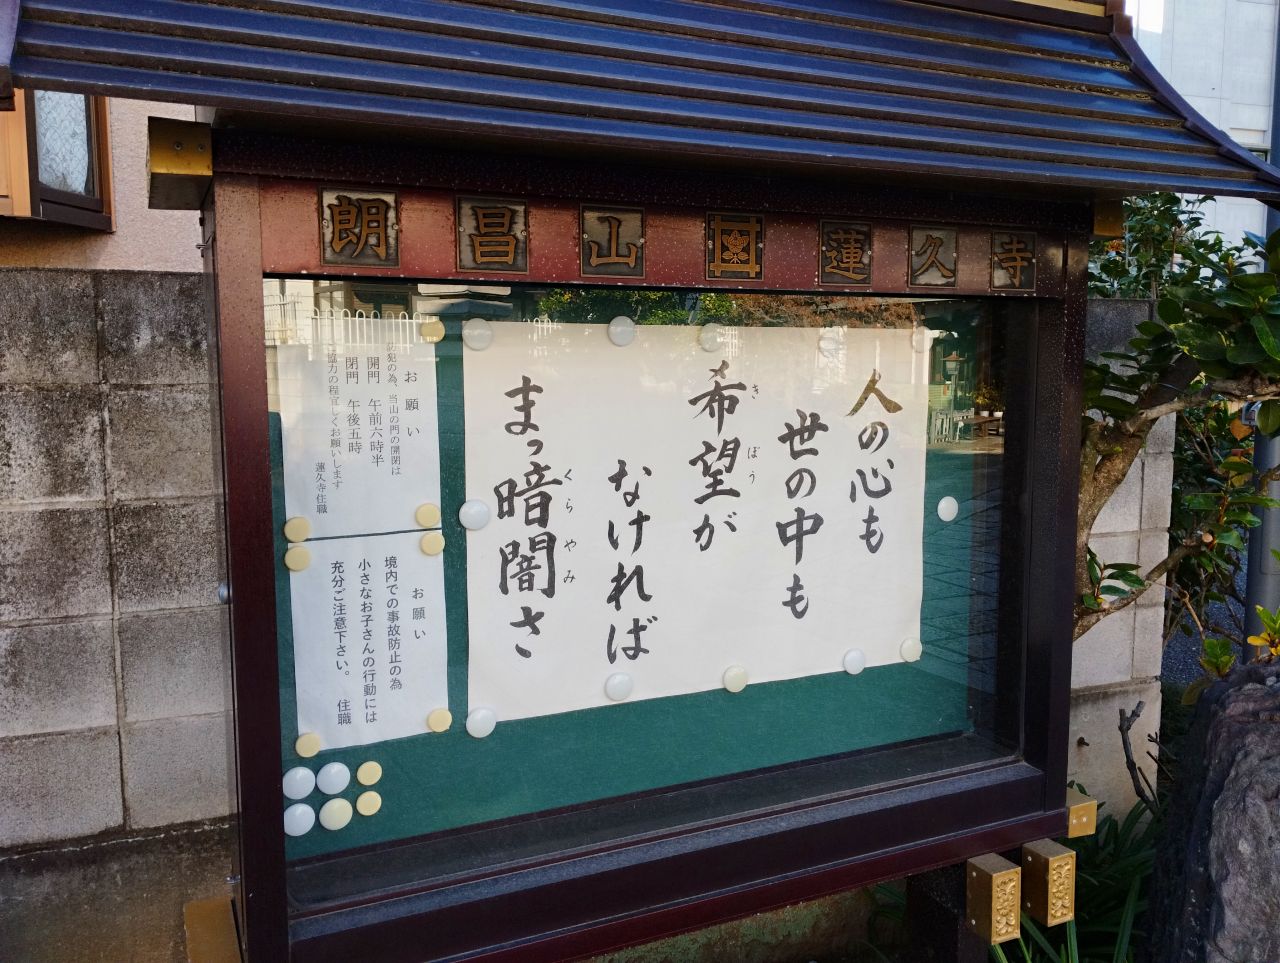 朗昌山 蓮久寺
人の心も
世の中も
希望が
きぼう
なければ
まっ暗闇さ
くらやみ
お願い
防犯の為、当山の門の開閉は
開門 午前六時半
閉門 午後五時
協力の程宜しくお願いします
蓮久寺住職
お願い
境内での事故防止の為
小さなお子さんの行動には
充分ご注意下さい。 住職